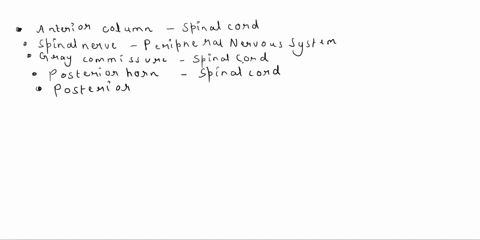 • Anterior column - Spinal cord
• Spinal nerve - Peripheral Nervous System
• Gray commissure - Spinal Cord
• Posterior horn - Spinal cord
• Posterior